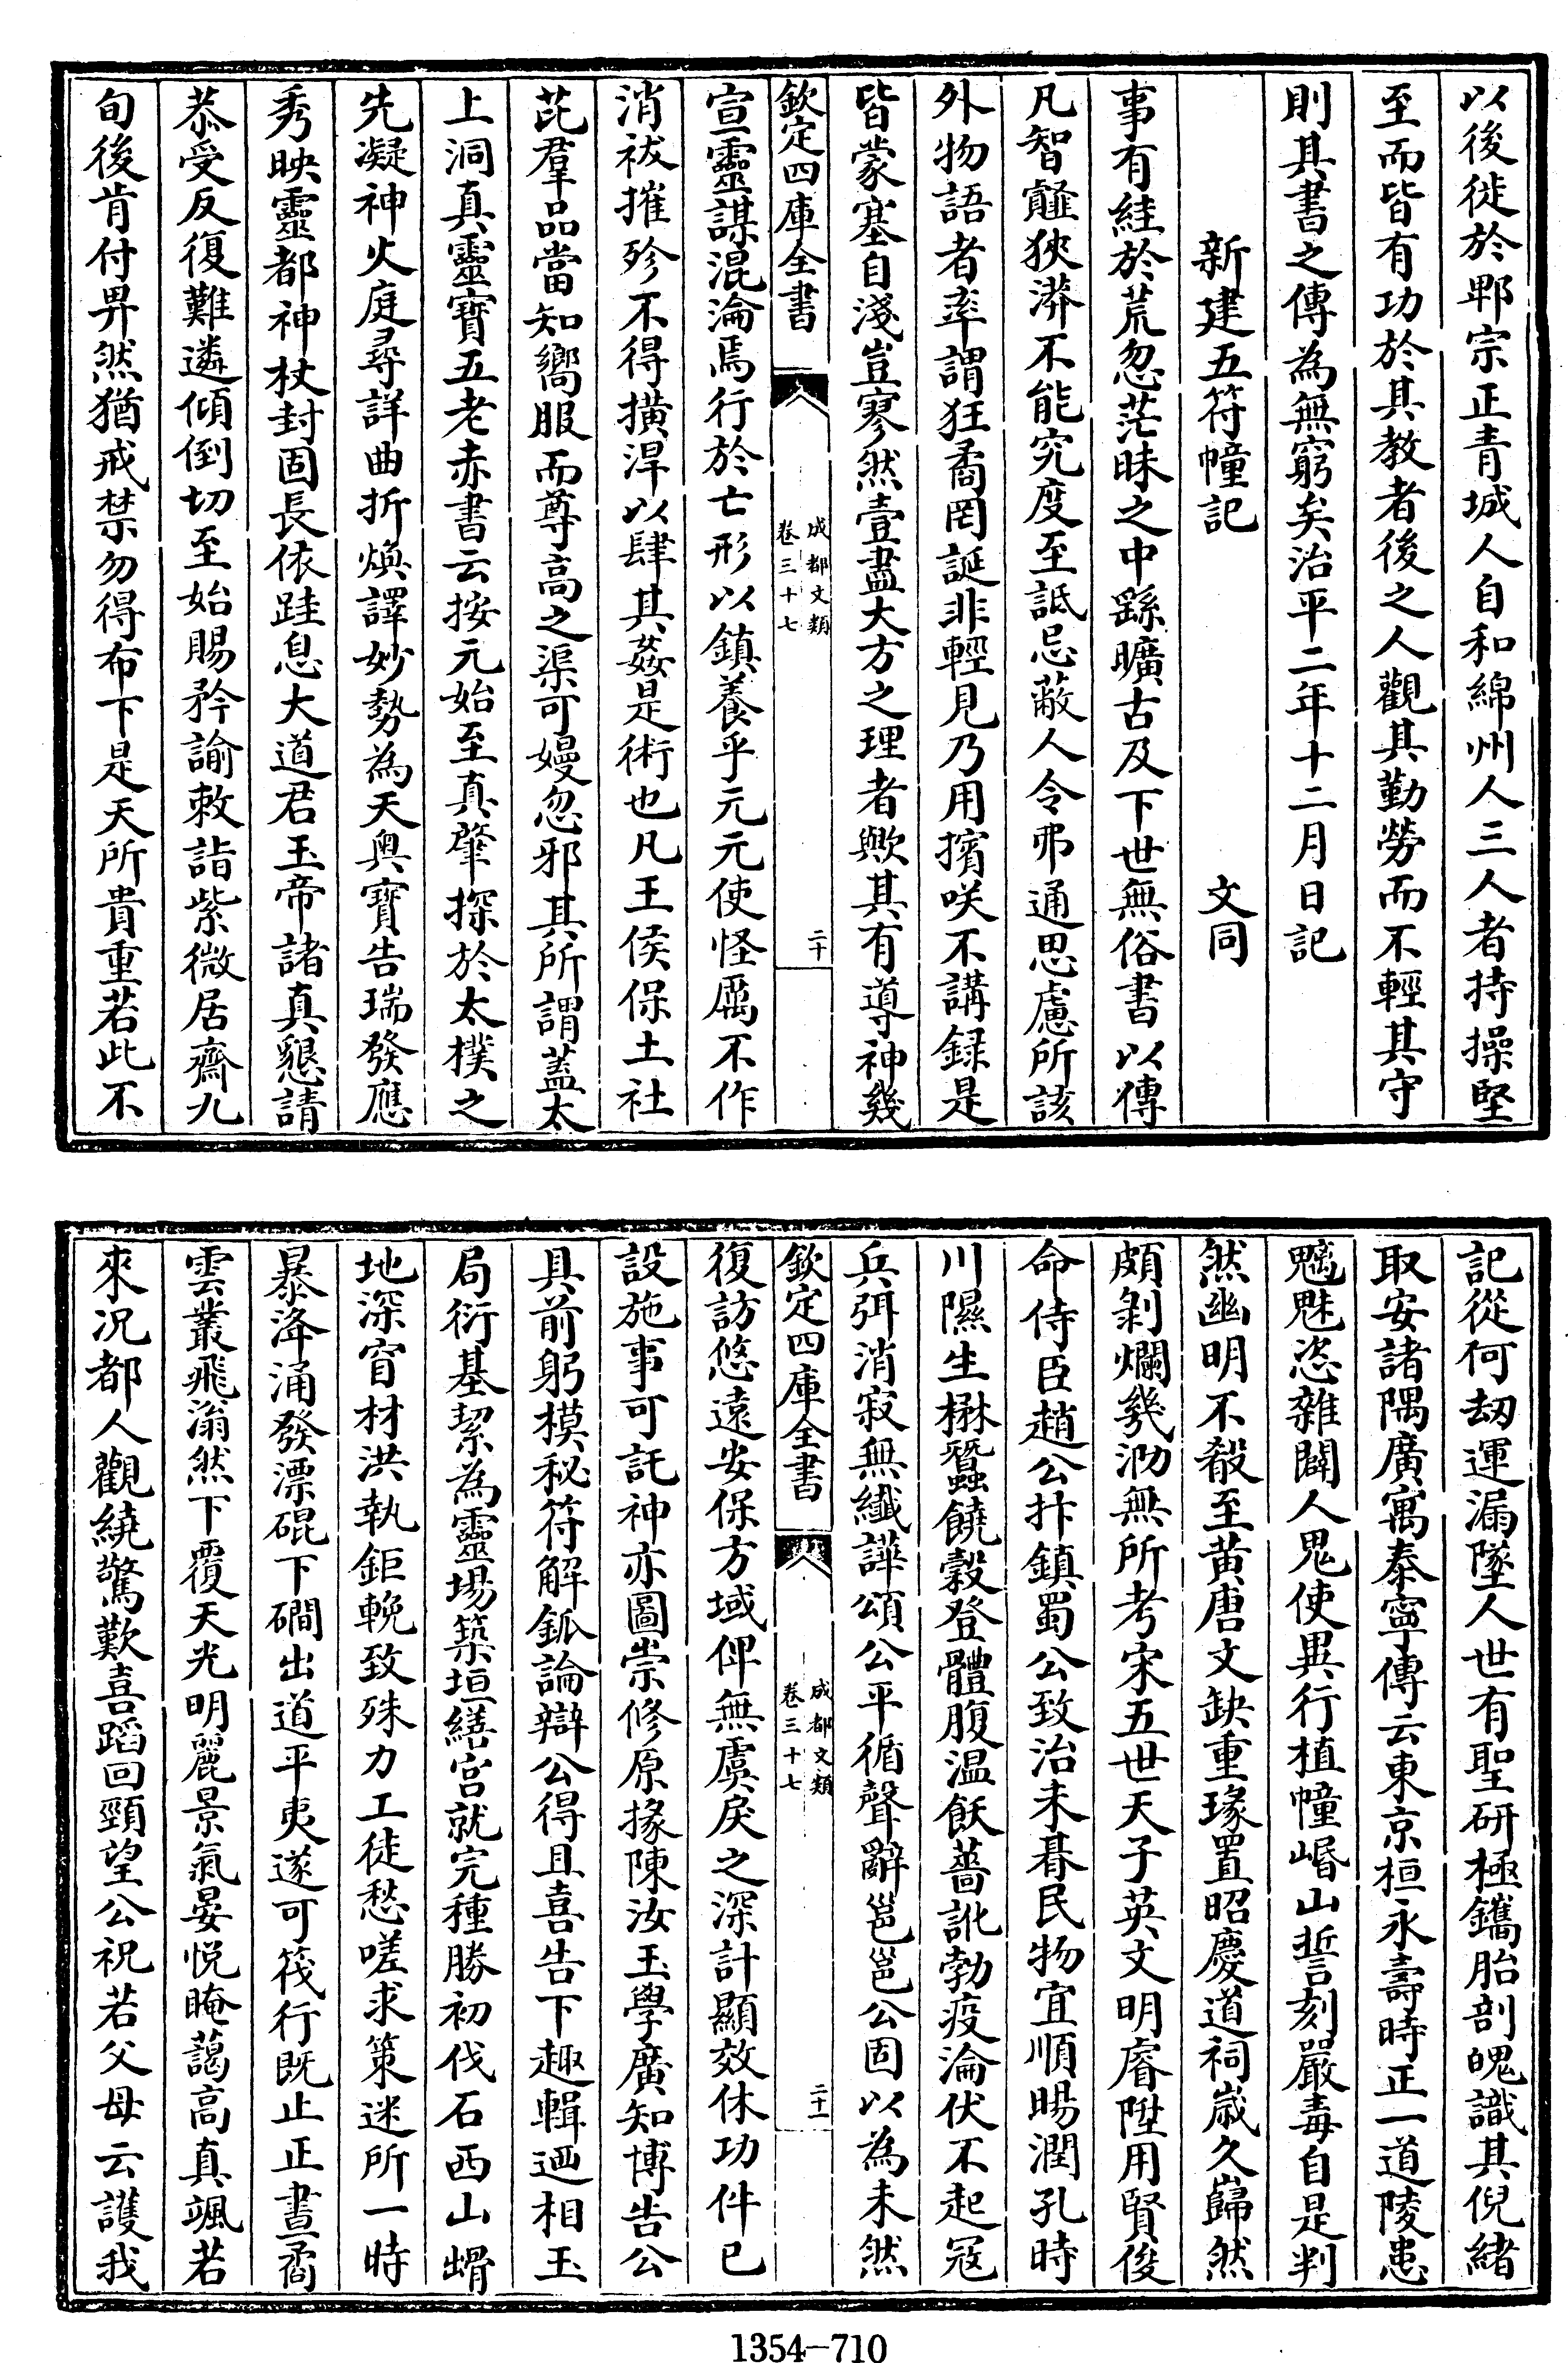 以後徙於郫宗正青城人自和綿州人三人者持操堅
至而皆有功於其教者後之人觀其勤勞而不輕其守
則其書之傳為無窮矣治平二年十二月日記
新建五符幢記 文同
事有絓於荒忽茫昧之中繇曠古及下世無俗書以傳
凡智齷狹滸不能究度至詆忌蔽人令弗通思慮所該
外物語者率謂狂矞罔誕非輕見乃用擯咲不講録是
皆蒙塞自淺豈寥然壹盡大方之理者歟其有導神幾
欽定四庫全書
成都文類
卷三十七
二十
宣靈謀混淪焉行於亡形以鎮養乎元元使怪厲不作
消祓摧殄不得撗淖以肆其姦是術也凡王侯保土社
芘羣品當知嚮服而尊高之渠可嫚忽邪其所謂蓋太
上洞真靈寶五老赤書云按元始至真肇探於太樸之
先凝神火庭尋詳曲折煥譯妙勢為天奥寶告瑞發應
秀映靈都神杖封固長依跬息大道君玉帝諸真懇請
恭受反復難遴傾倒切至始賜矜諭敕詣紫微居齋九
旬後肯付畀然猶戒禁勿得布下是天所貴重若此不
記從何劫運漏墜人世有聖研極鑴胎剖魄識其倪緒
取安諸隅廣寓泰寧傳云東京桓永壽時正一道陵患
魑魅恣雜闢人鬼使異行植幢崏山誓刻嚴毒自是判
然幽明不殽至黄唐文缺重瑑置昭慶道祠歲久巋然
頗剝爛㡬泐無所考宋五世天子英文明睿陞用賢俊
命侍臣趙公抃鎮蜀公致治未朞民物宜順暘潤孔時
川隰生楙蠶饒穀登體腹温飫薔訛勃疫淪伏不起冦
兵弭消寂無纖譁頌公平循聲辭邕邕公固以為未然
欽定四庫全書
成都文類
卷三十七
二十一
復訪悠遠安保方域俾無虞戾之深計顯效休功件已
設施事可託神亦圖崇修原掾陳汝玉學廣知博告公
具前躬模秘符解釽論辯公得且喜告下趣輯迺相玉
局衍基絜為靈場築垣繕宫就完種勝初伐石西山㟯
地深窅材洪執鉅輓致殊力工徒愁嗟求策迷所一時
暴洚涌發漂硍下磵出道平夷遂可筏行既止正晝矞
雲叢飛滃然下覆天光明麗景氣晏悦晻藹高真颯若
來况都人觀繞驚歎喜蹈回頸望公祝若父母云護我
1354-710